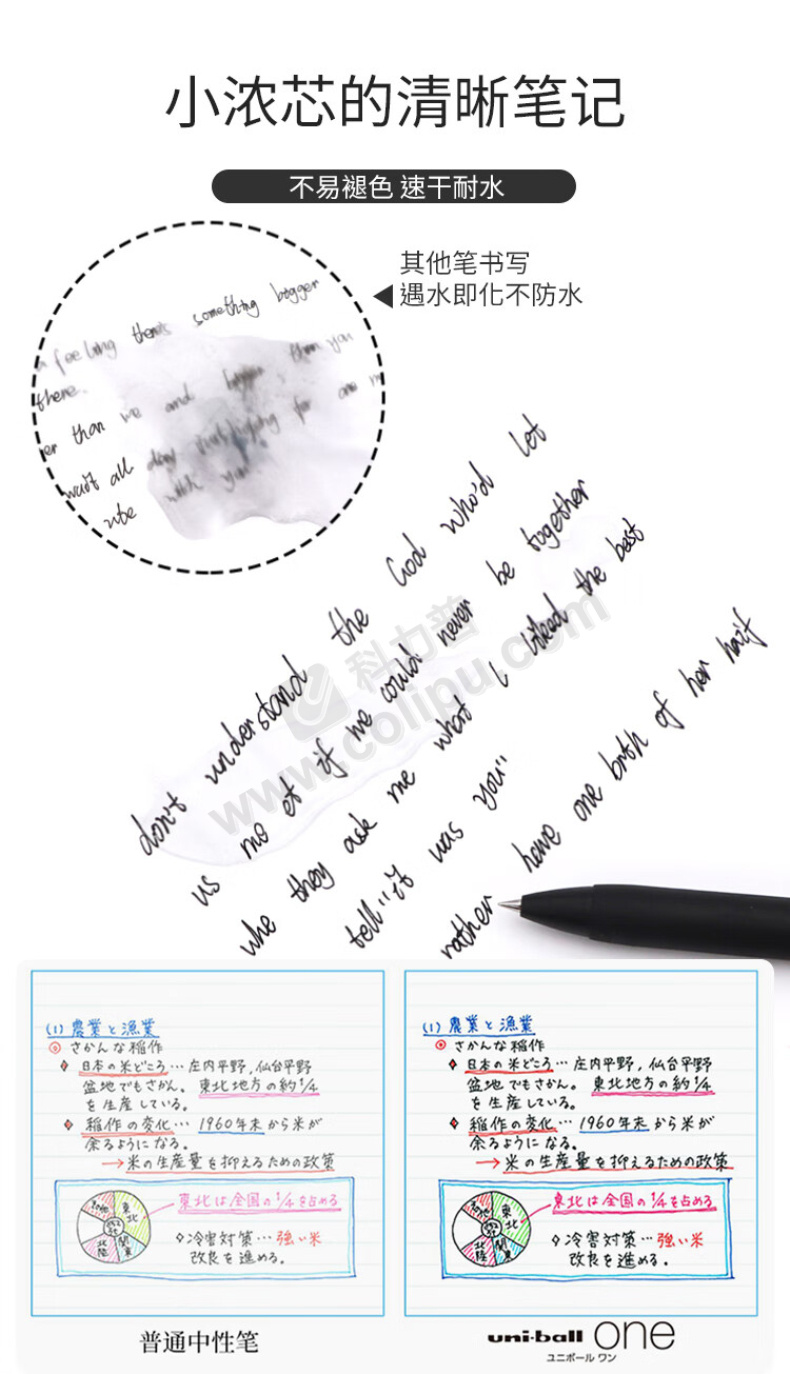 小浓芯的清晰笔记
不易褪色 速干耐水
其他笔书写
遇水即化不防水
a feeling there's something bigger
there.
er than we and bigger than you
wait all day just hoping for one m
with you
don't understand the God who'd let
us mo et if we could never be together
whe they ask me what I liked the best
tell "it was you"
rather have one brth of her hair
科力普
www.colipu.com
(1) 農業と漁業
さかんな稲作
日本の米どころ… 庄内平野,仙台平野
盆地でもさかん。 東北地方の約1/4
を生産している。
稲作の変化… 1960年末から米が
余るようになる。
→米の生産量を抑えるための政策
東北は全国の1/4を占める
東北
関東
北陸
その他
◇冷害対策…強い米
改良を進める。
普通中性笔
(1) 農業と漁業
さかんな稲作
日本の米どころ… 庄内平野,仙台平野
盆地でもさかん。 東北地方の約1/4
を生産している。
稲作の変化… 1960年末から米が
余るようになる。
→米の生産量を抑えるための政策
東北は全国の1/4を占める
東北
関東
北陸
その他
◇冷害対策…強い米
改良を進める。
uni-ball one
ユニボール ワン